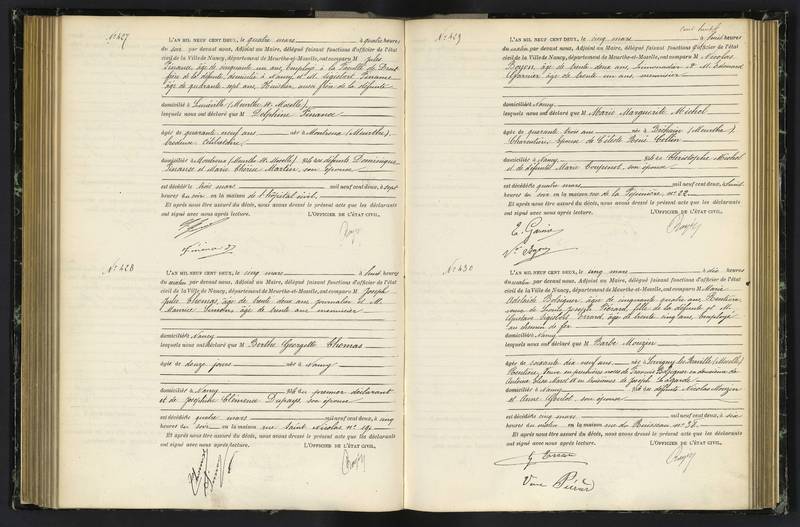 N° 427
L'AN MIL NEUF CENT DEUX, le quatre mars à quatre heures
du soir par devant nous, Adjoint au Maire, délégué faisant fonctions d'officier de l'état
civil de la Ville de Nancy, département de Meurthe-et-Moselle, ont comparu M Jules
Finance, âgé de cinquante un ans, employé à la Faculté de Droit
frère de la défunte, domicilié à Nancy et M. Sigisbert Finance
âgé de quarante sept ans, Huissier aussi frère de la défunte
domicilié à Lunéville (Meurthe et Moselle)
lesquels nous ont déclaré que M Delphine Finance
âgée de quarante neuf ans née à Montreux (Meurthe),
brodeuse célibataire
domiciliée à Montreux (Meurthe et Moselle) fille des défunts Dominique
Finance et Marie Thérèse Martin, son épouse
est décédée le trois mars mil neuf cent deux, à sept
heures du soir en la maison de l'hôpital civil
Et après nous être assuré du décès, nous avons dressé le présent acte que les déclarants
ont signé avec nous après lecture. L'OFFICIER DE L'ÉTAT CIVIL,
N° 428
L'AN MIL NEUF CENT DEUX, le cinq mars à huit heures
du matin par devant nous, Adjoint au Maire, délégué faisant fonctions d'officier de l'état
civil de la Ville de Nancy, département de Meurthe-et-Moselle, ont comparu M Joseph
Jules Thomas, âgé de trente deux ans, journalier et M.
Maurice Simon, âgé de trente ans menuisier
domiciliés à Nancy
lesquels nous ont déclaré que M Berthe Georgette Thomas
âgée de deux jours née à Nancy
domiciliée à Nancy fille du premier déclarant
et de Clémence Dupays, son épouse
est décédée quatre mars mil neuf cent deux, à cinq
heures du soir en la maison rue Saint Nicolas n°
Et après nous être assuré du décès, nous avons dressé le présent acte que les déclarants
ont signé avec nous après lecture. L'OFFICIER DE L'ÉTAT CIVIL,
N° 429
L'AN MIL NEUF CENT DEUX, le cinq mars à huit heures
du matin par devant nous, Adjoint au Maire, délégué faisant fonctions d'officier de l'état
civil de la Ville de Nancy, département de Meurthe-et-Moselle, ont comparu M Nicolas
âgé de trente deux ans, et M. Edmond
âgé de trente un ans menuisier
domiciliés à Nancy
lesquels nous ont déclaré que M Marie Marguerite Michel
âgée de quarante trois ans née à (Meurthe),
épouse de Céleste René Collin
domiciliée à Nancy fille de Christophe Michel
et de défunte Marie son épouse
est décédée quatre mars mil neuf cent deux, à huit
heures du soir en la maison rue de la Pépinière, n° 22
Et après nous être assuré du décès, nous avons dressé le présent acte que les déclarants
ont signé avec nous après lecture. L'OFFICIER DE L'ÉTAT CIVIL,
N° 430
L'AN MIL NEUF CENT DEUX, le cinq mars à dix heures
du matin par devant nous, Adjoint au Maire, délégué faisant fonctions d'officier de l'état
civil de la Ville de Nancy, département de Meurthe-et-Moselle, ont comparu M Marie
Adélaïde âgée de cinquante quatre ans Rentière
veuve de Louis Joseph Piérard, fille de la défunte et M.
Gustave Sigisbert Errard, âgé de trente cinq ans, employé
au chemin de fer
domiciliés à Nancy
lesquels nous ont déclaré que M Barbe Mougin
âgée de soixante dix neuf ans née à (Moselle)
Rentière, Veuve en premières noces de François
et en secondes de Joseph
domiciliée à Nancy fille des défunts Nicolas Mougin
et Anne son épouse
est décédée cinq mars mil neuf cent deux, à six
heures du matin en la maison rue du Ruisseau n° 38
Et après nous être assuré du décès, nous avons dressé le présent acte que les déclarants
ont signé avec nous après lecture. L'OFFICIER DE L'ÉTAT CIVIL,
Errard
Veuve Piérard